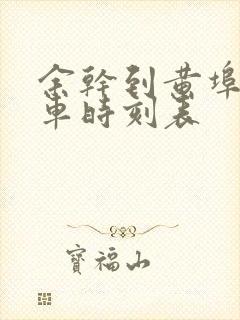 余幹到黃埠
車時刻表
寶福山